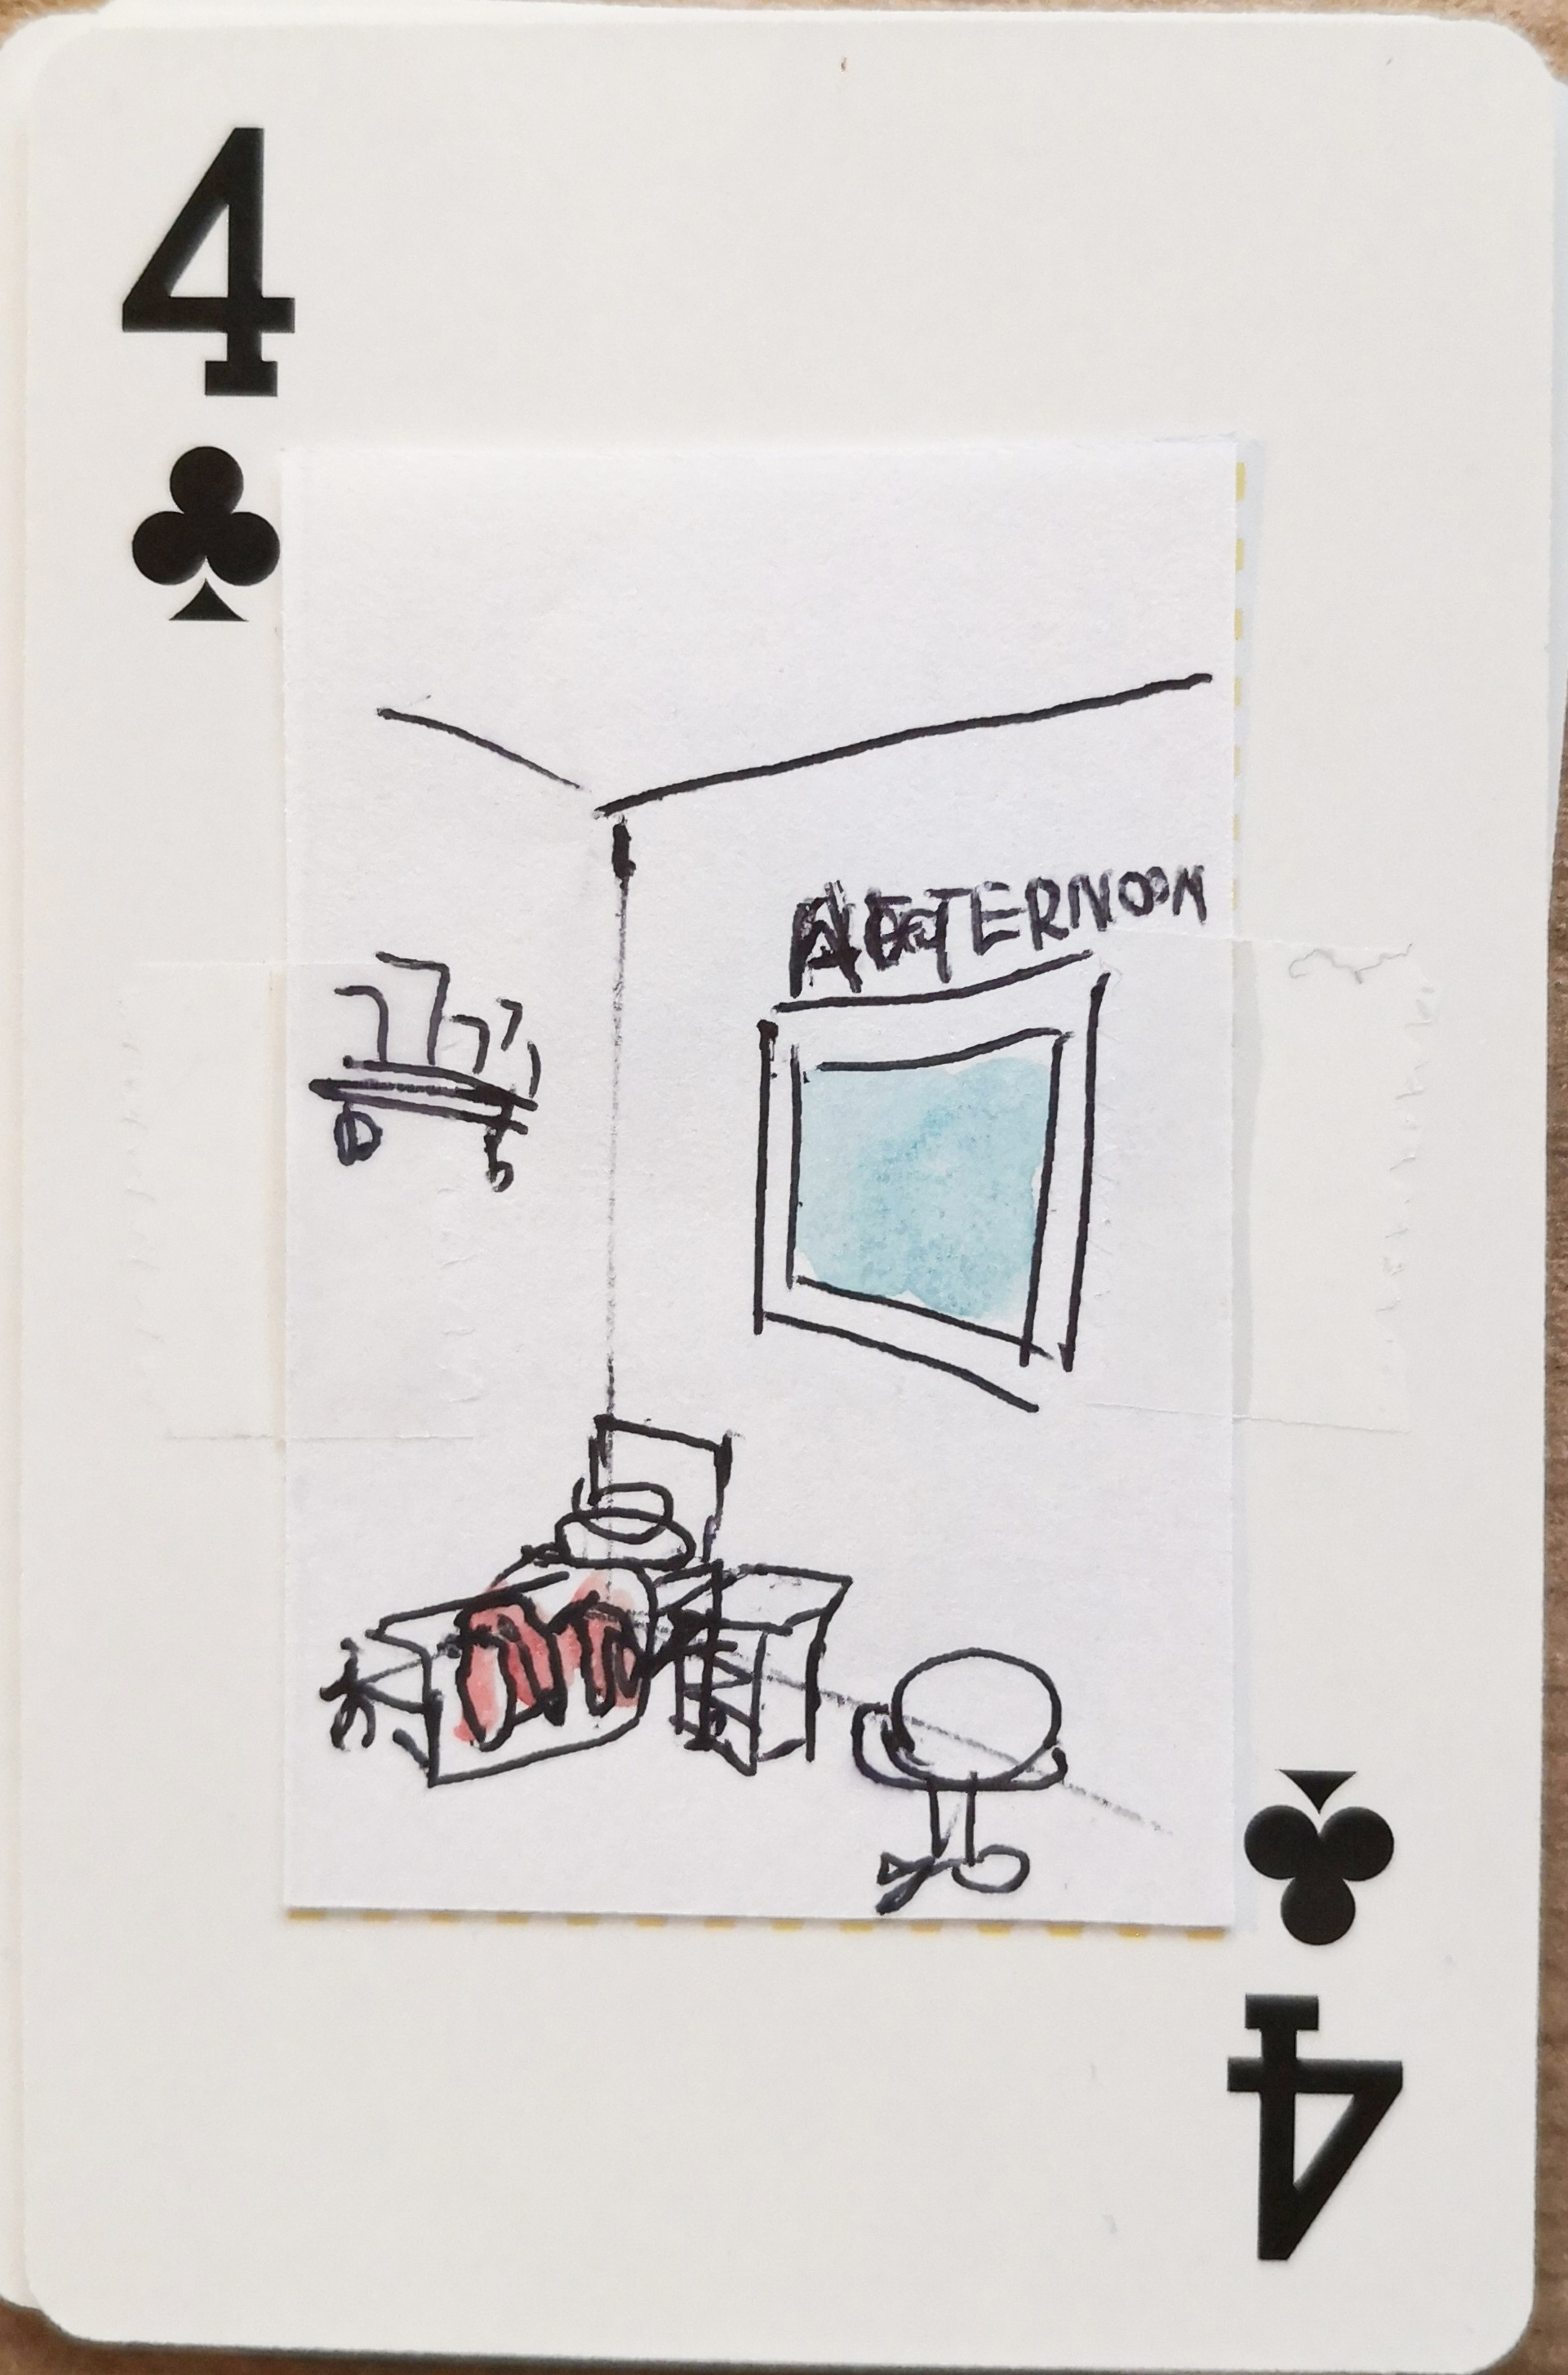 4
AFTERNOON
4